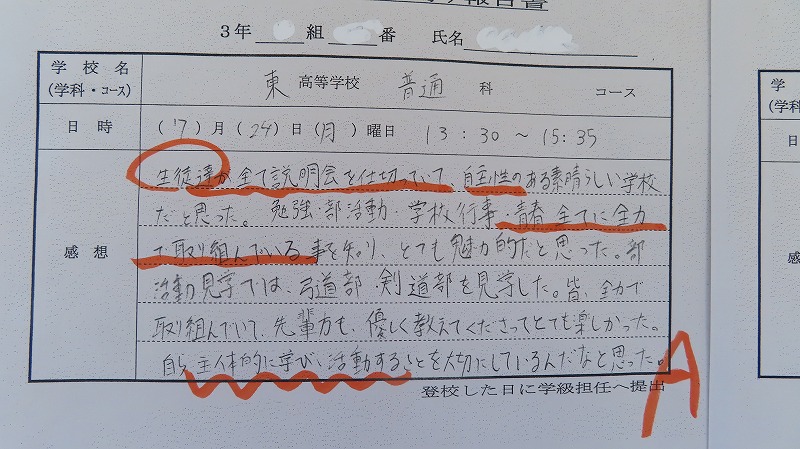 報告書
3年 組 番 氏名
学校名 東 高等学校 普通 科 コース
(学科・コース)
日時 (7)月(24)日(月)曜日 13:30～15:35
生徒達が全て説明会を仕切っていて、自主性のある素晴らしい学校
だと思った。勉強・部活動・学校行事・青春全てに全力
感想 で取り組んでいる事を知り、とても魅力的だと思った。部
活動見学では、弓道部・剣道部を見学した。皆、全力で
取り組んでいて、先輩方も、優しく教えてくださってとても楽しかった。
自ら主体的に学び、活動することを大切にしているんだなと思った。
A
登校した日に学級担任へ提出
学
(学科
日
感